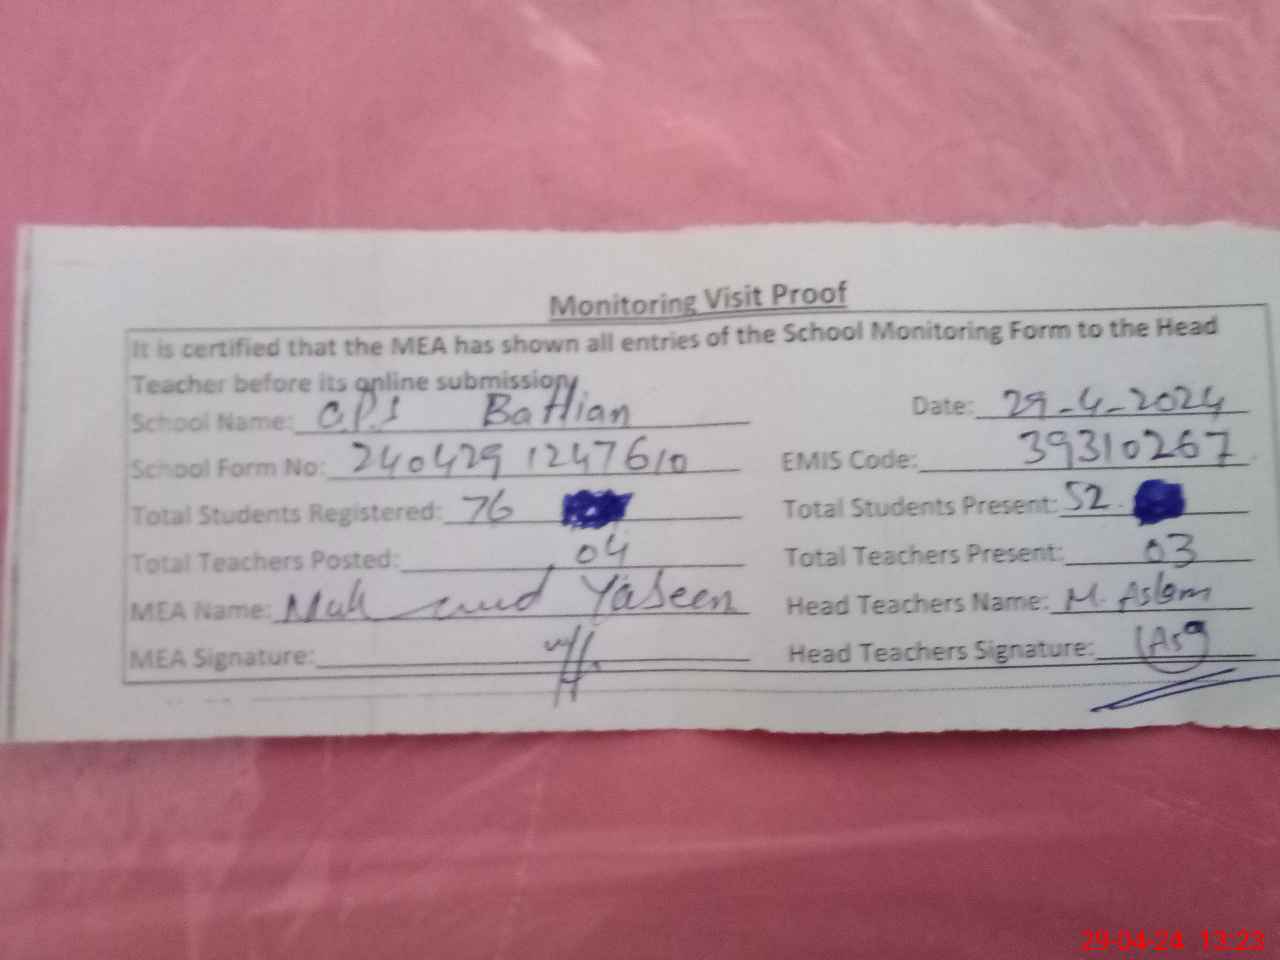 Monitoring Visit Proof
It is certified that the MEA has shown all entries of the School Monitoring Form to the Head
Teacher before its online submission.
School Name: G.P.S Battian Date: 29-4-2024
School Form No: 2404291247610 EMIS Code: 39310267
Total Students Registered: 76 Total Students Present: 52
Total Teachers Posted: 04 Total Teachers Present: 03
MEA Name: Yaseen Head Teachers Name: M. Aslam
MEA Signature: Head Teachers Signature:
29-04-24 13:23